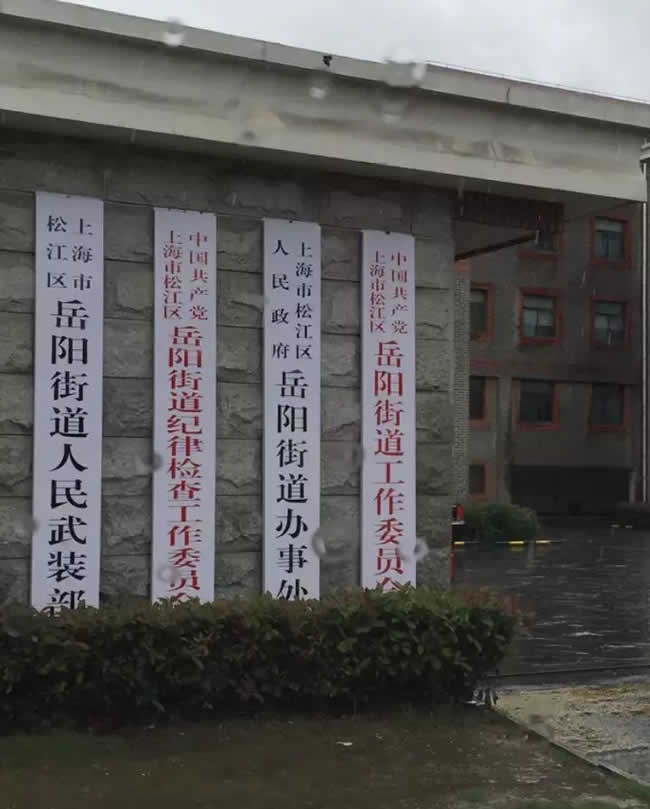 中国共产党
上海市松江区
岳阳街道工作委员会
上海市松江区
人民政府
岳阳街道办事处
中国共产党
上海市松江区
岳阳街道纪律检查工作委员会
上海市
松江区
岳阳街道人民武装部